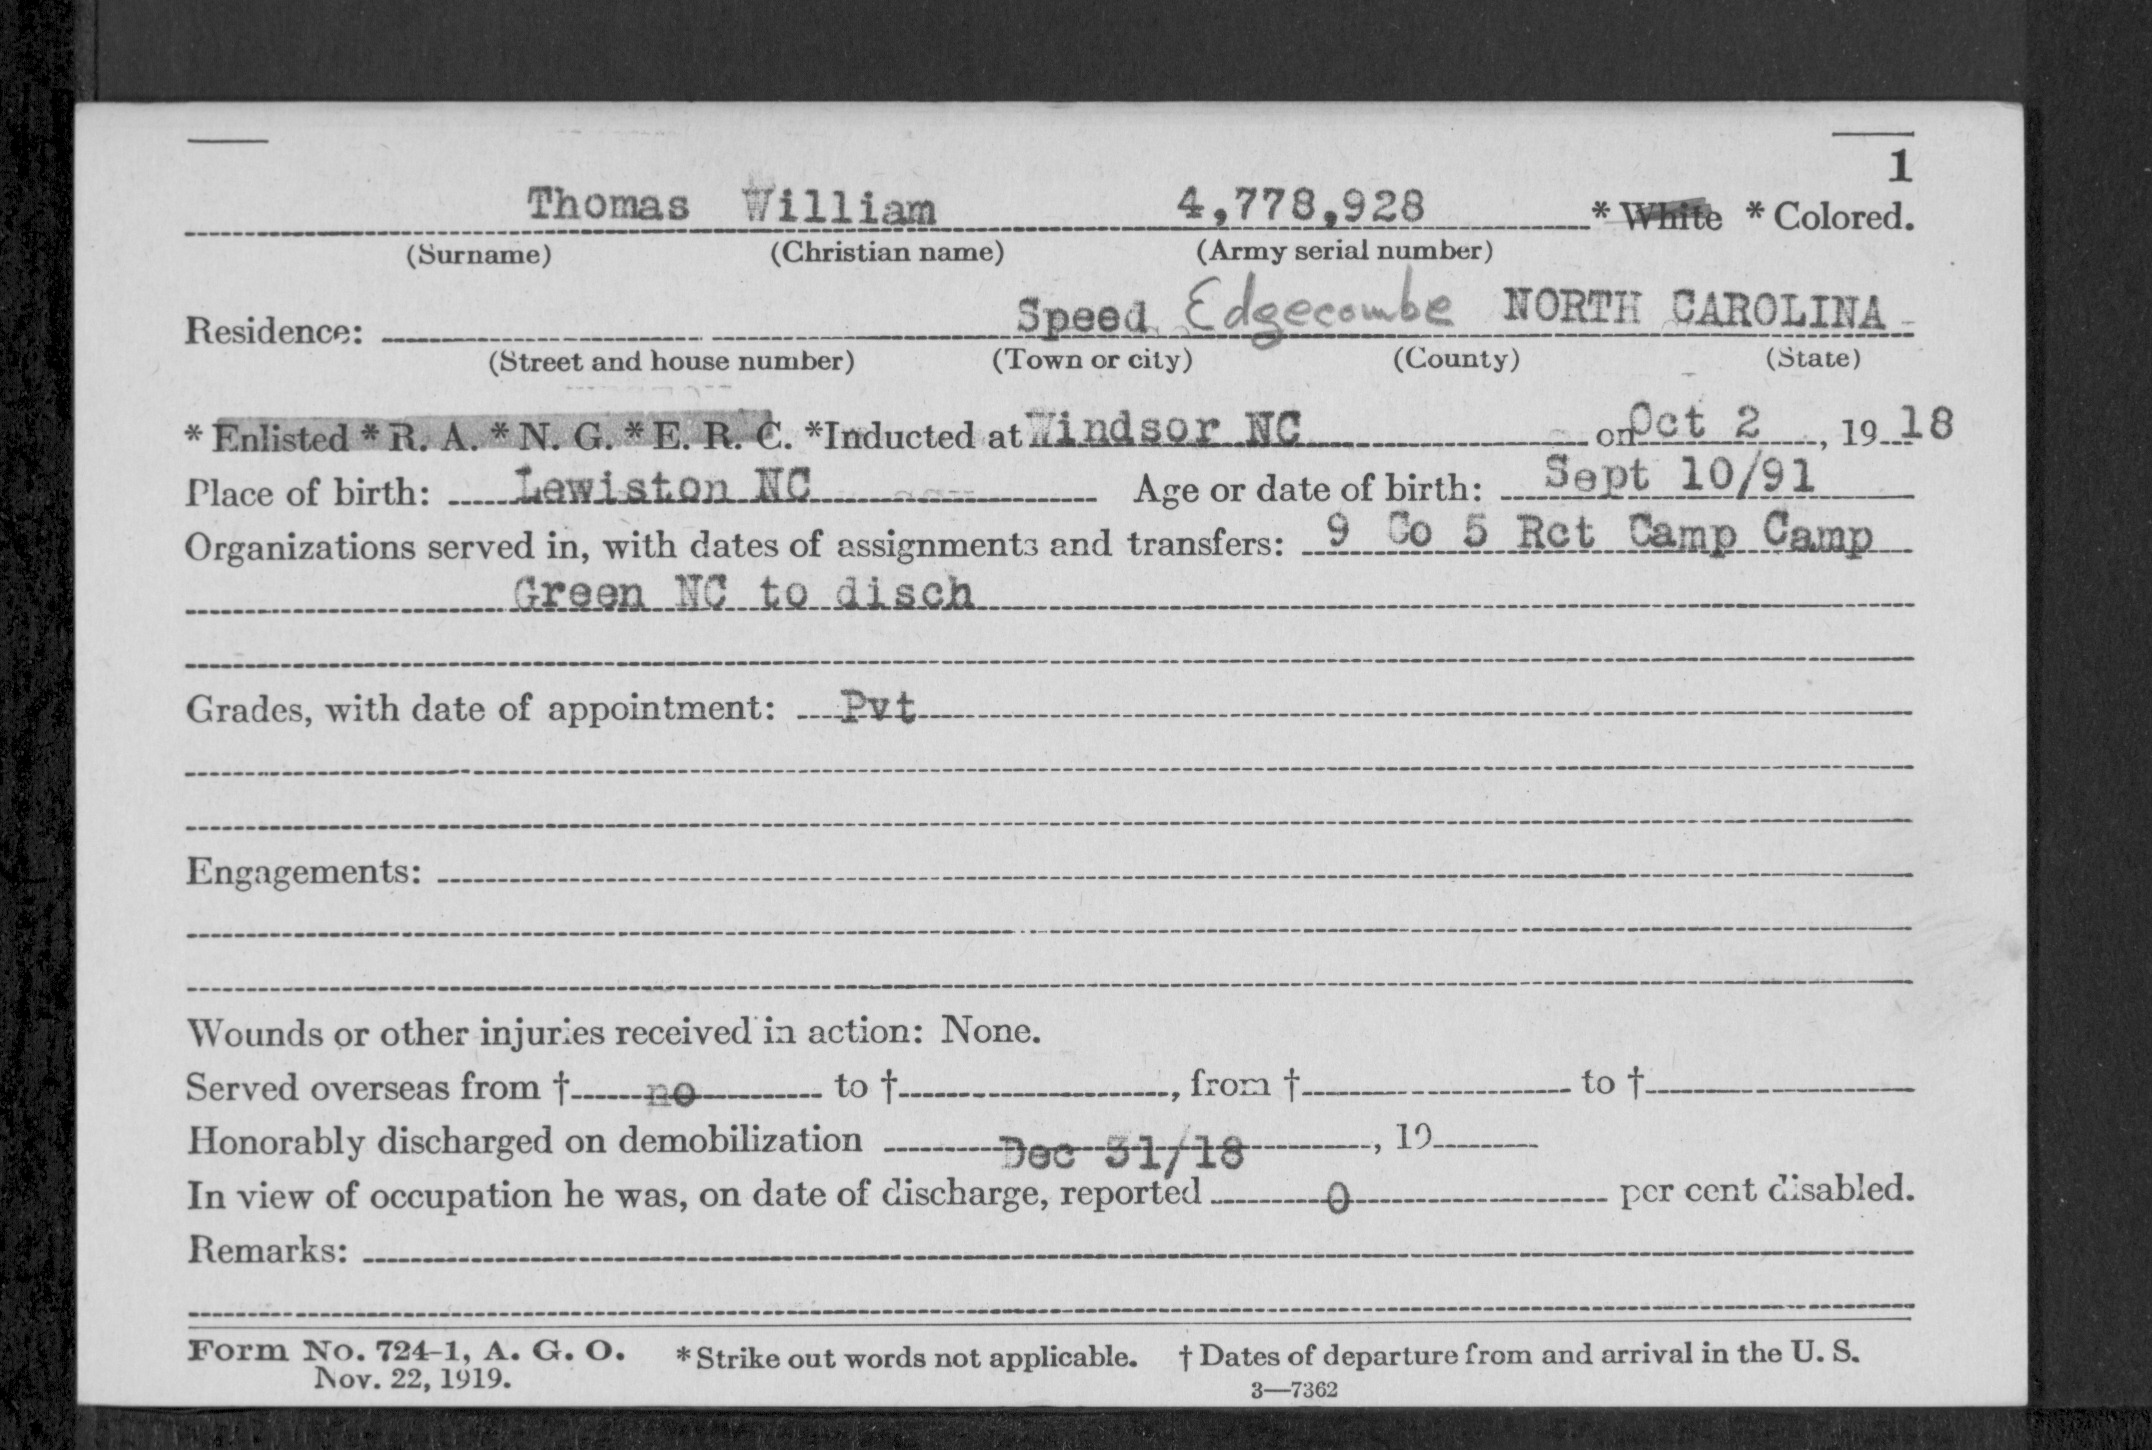 1
Thomas William 4,778,928 * White * Colored.
(Surname) (Christian name) (Army serial number)
Residence: Speed Edgecombe NORTH CAROLINA
(Street and house number) (Town or city) (County) (State)
* Enlisted * R. A. * N. G. * E. R. C. *Inducted at Windsor NC on Oct 2, 19 18
Place of birth: Lewiston NC Age or date of birth: Sept 10/91
Organizations served in, with dates of assignments and transfers: 9 Co 5 Rct Camp Camp
Green NC to disch
Grades, with date of appointment: Pvt
Engagements:
Wounds or other injuries received in action: None.
Served overseas from † no to †, from † to †
Honorably discharged on demobilization Dec 31/18, 19
In view of occupation he was, on date of discharge, reported 0 per cent disabled.
Remarks:
Form No. 724-1, A. G. O. * Strike out words not applicable. † Dates of departure from and arrival in the U. S.
Nov. 22, 1919. 3—7362